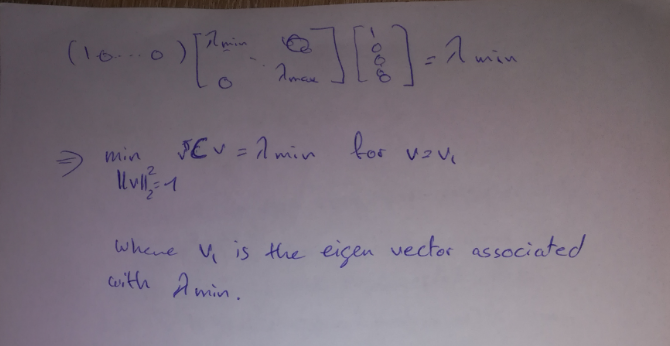 (1 0 ... 0) [ λmin 0 ⋱ 0 λmax ] [ 1 0 0 0 ] = λ min
⇒ min vᵀC v = λ min for v = v₁
||v||₂² = 1
where v₁ is the eigen vector associated
with λ min.